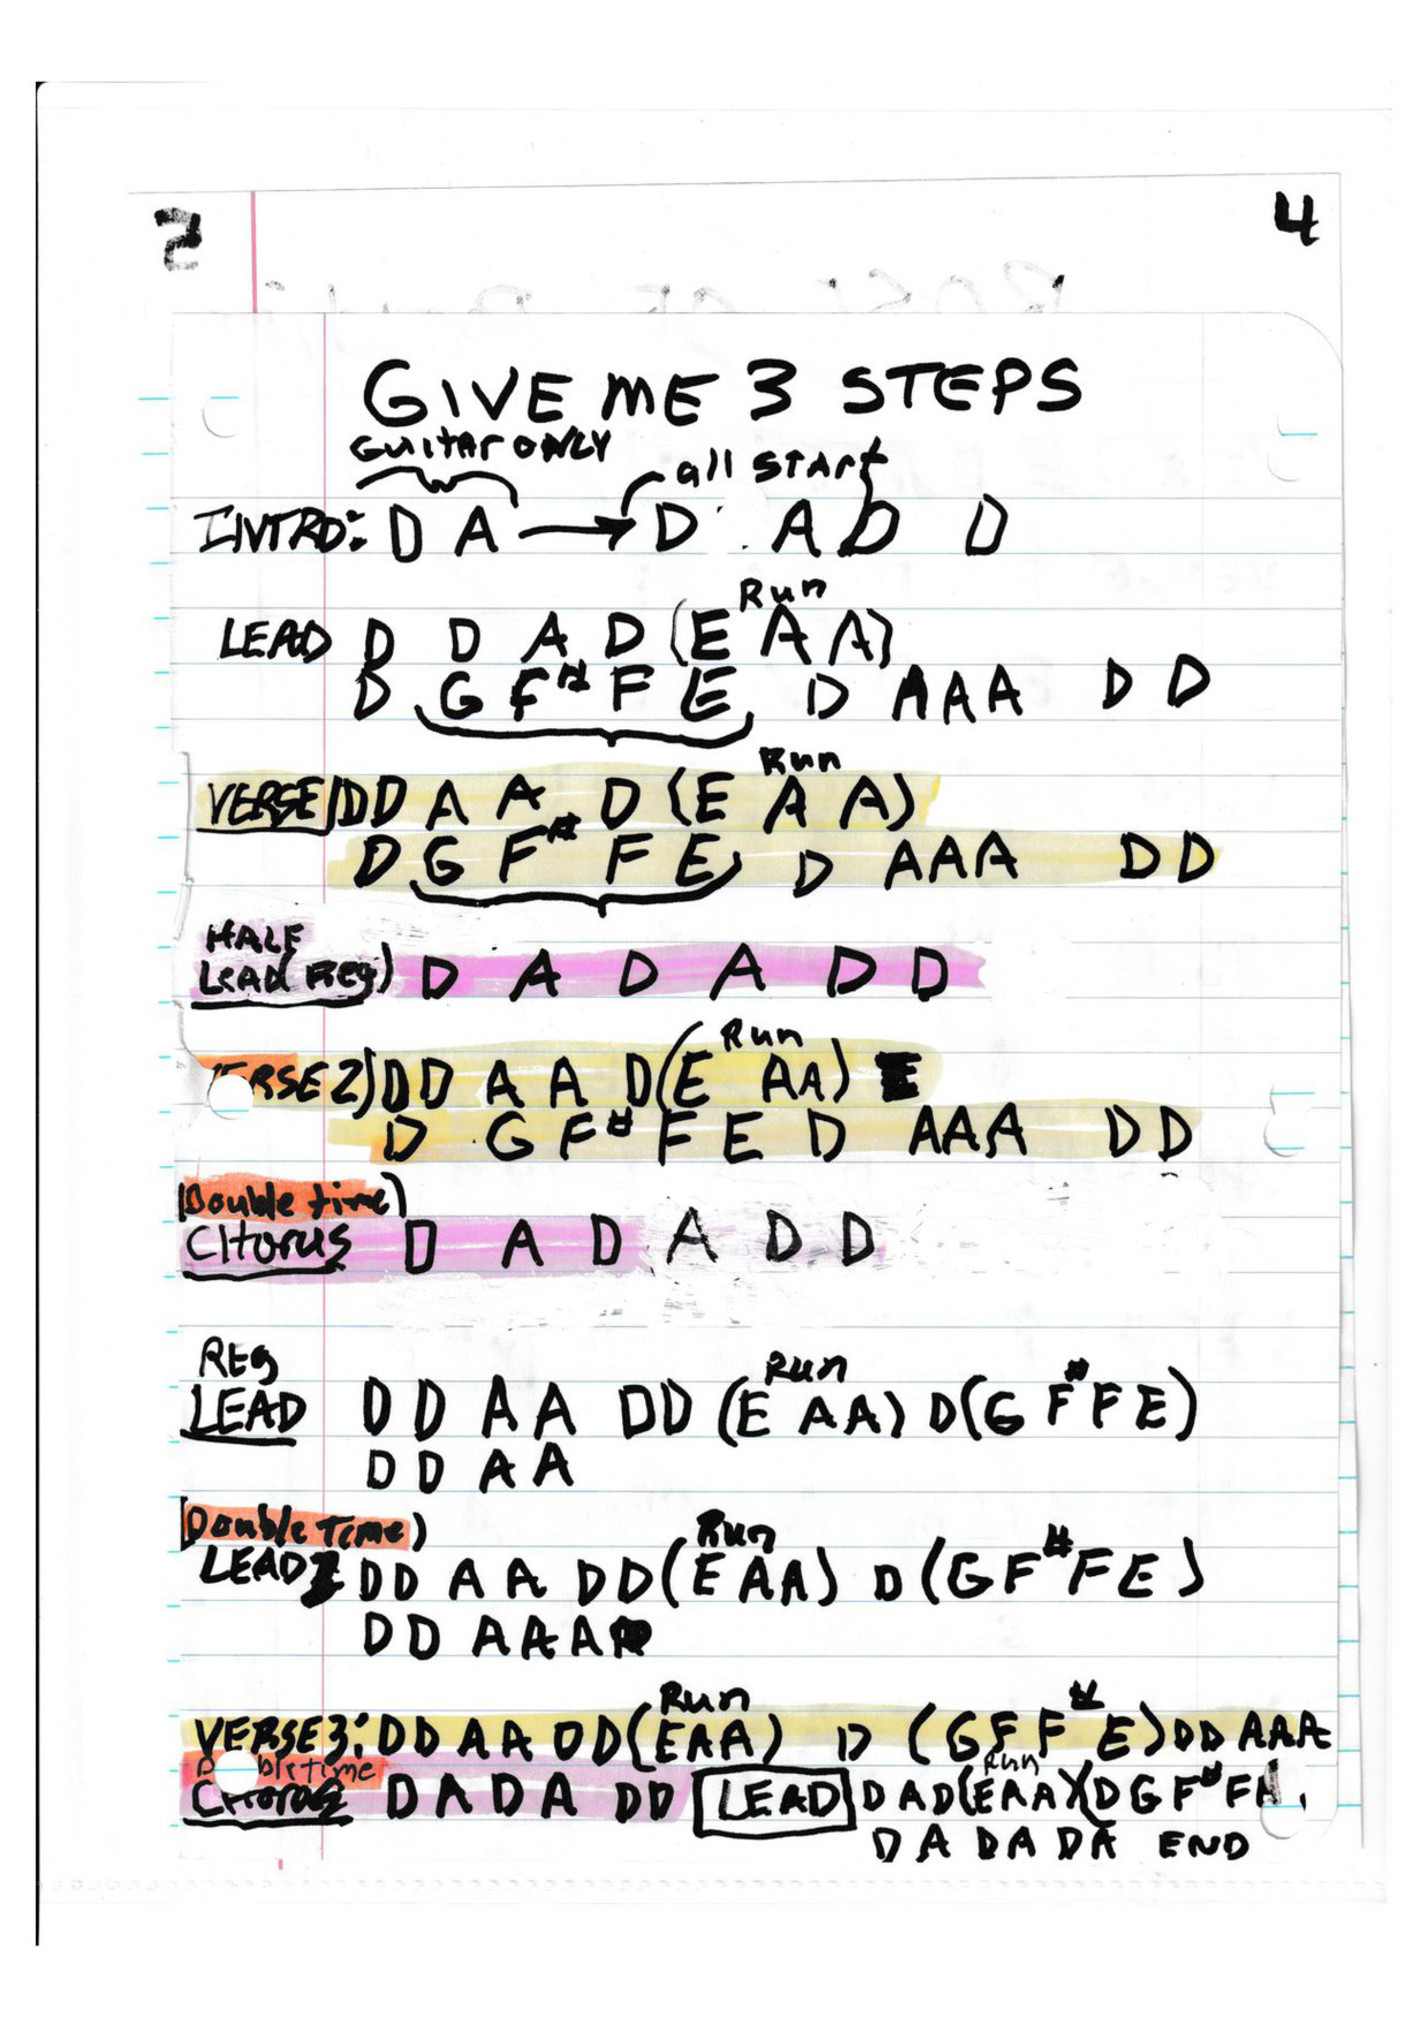 2 4
GIVE ME 3 STEPS
Guitar ONLY all START
INTRO: D A → D A D D
Run
LEAD D D A D (E A A)
D G F# F E D AAA D D
Run
VERSE 1) D D A A D (E A A)
D G F# F E D AAA D D
HALF
LEAD (Reg) D A D A D D
Run
VERSE 2) D D A A D (E AA) E
D G F# F E D AAA D D
(Double time)
CHorus D A D A D D
REG Run
LEAD D D A A D D (E A A) D (G F# F E)
D D A A
(Double Time) Run
LEAD D D A A D D (E A A) D (G F# F E)
D D A A A
Run
VERSE 3: D D A A D D (E A A) D (G F F# E) D D A A A
Double time Run
CHorus D A D A D D LEAD D A D (E A A) (D G F# F
D A D A D A END